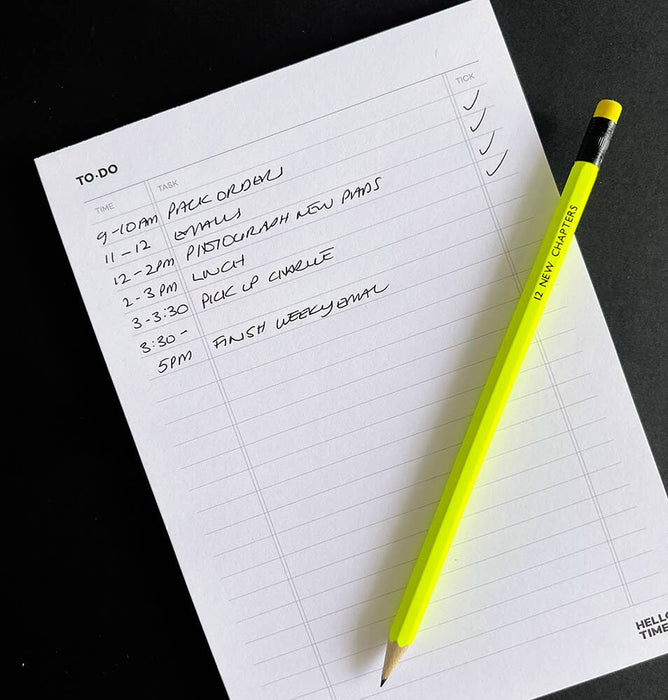 TO-DO
TIME TASK TICK
9-10AM PACK ORDERS ✓
11-12 EMAILS ✓
12-2PM PHOTOGRAPH NEW PADS ✓
2-3PM LUNCH ✓
3-3:30 PICK UP CHARLIE
3:30-
5PM FINISH WEEKLY EMAIL
12 NEW CHAPTERS
HELLO
TIME